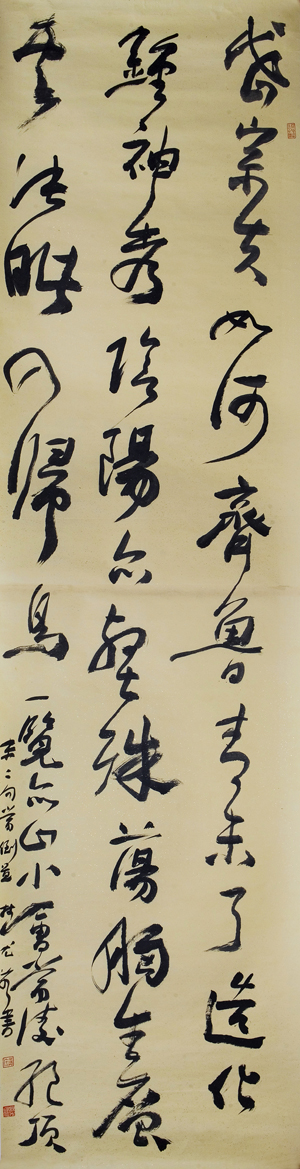 岱宗夫如何齊魯青未了造化
鍾神秀陰陽殊蕩胸生層
雲決眥入歸鳥一覽眾山小會當凌絕頂
末二句當倒書